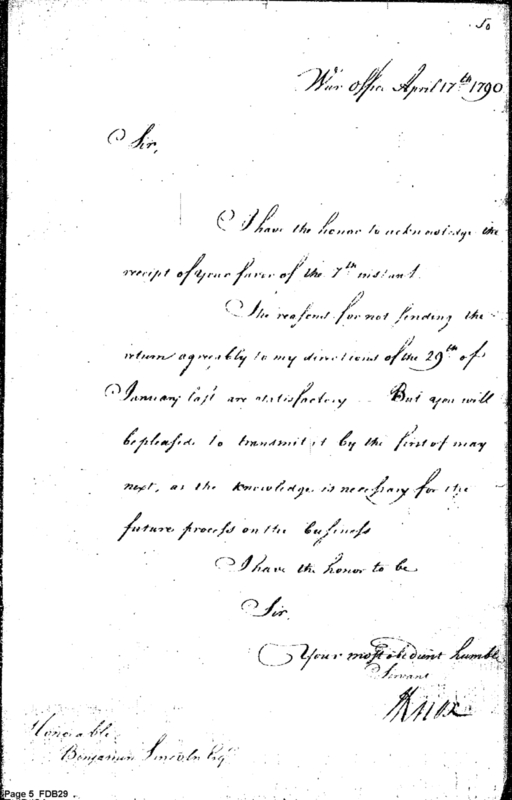 50
War Office April 17th 1790
Sir,
I have the honor to acknowledge the
receipt of your favor of the 7th instant.
The reasons for not sending the
return agreeably to my directions of the 29th of
January last are satisfactory — But you will
be pleased to transmit it by the first of may
next, as the knowledge is necessary for the
future process on the business
I have the honor to be
Sir,
Your most obedient humble
Servant
HKnox
Honorable
Benjamin Lincoln Esqr
Page 5_FDB29